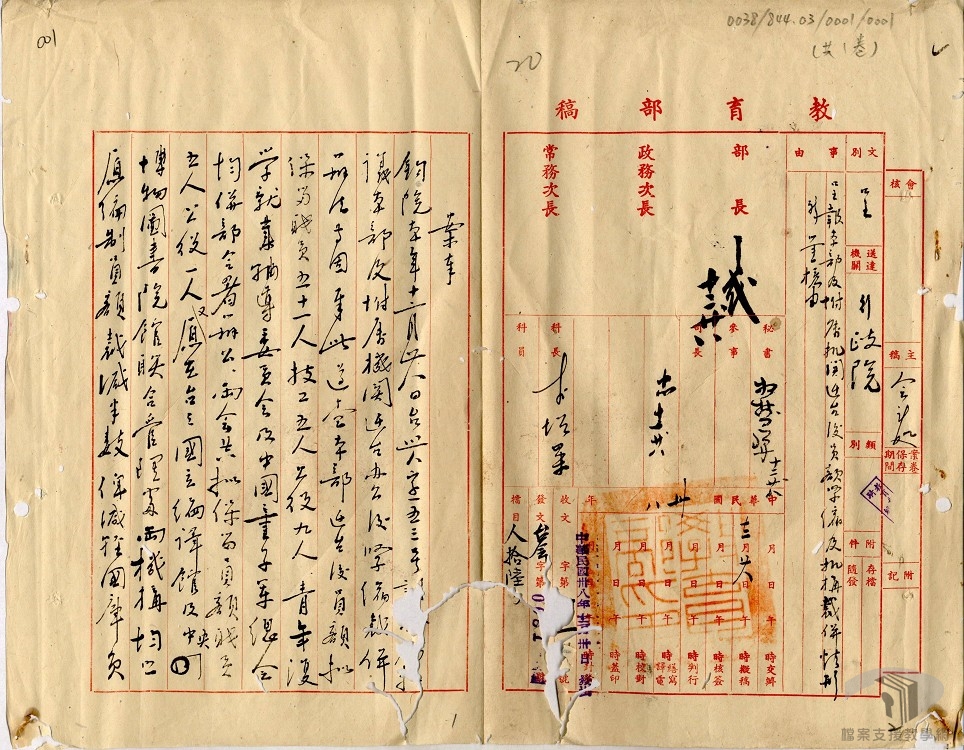 0038/844.03/0001/0001
(共1卷)
20
001
教育部稿
會核
主稿
會計處
案卷保存期間
附記
文別
呈
送達機關
行政院
類別
附件
存檔
隨發
事由
呈報本部及附屬機關遷台後員額緊縮及機構裁併情形
祈鑒核由
部長
政務次長
常務次長
秘書
參事
司長
科長
科員
中華民國
年
卅八
十二月廿八日
月日午時交辦
月日午時擬稿
月日午時核簽
月日午時判行
月日午時繕寫譯電
月日午時校對
月日午時蓋印
收文字第號
發文台字第
檔目
人拾陸
中華民國卅八年
案奉
鈞院本年十二月廿八日台共字五五三號
議本部及附屬機關遷台辦公後緊縮裁併
辦法等因奉此遵查本部遷台後員額擬
保留職員五十一人技工五人公役九人青年復
學就業輔導委員會及中國童子軍總會
均併部合署辦公兩會共擬保留員額職員
五人公役一人又原在台之國立編譯館及中央
博物圖書院館聯合管理處兩機構均照
原編制員額裁減半數俾減輕國庫負
1
檔案支援教學網